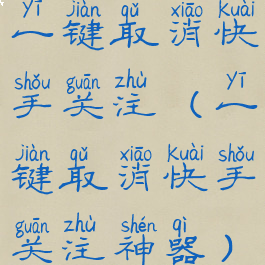 yī jiàn qǔ xiāo Kuài
一键取消快
shǒu guān zhù yī
手关注（一
jiàn qǔ xiāo Kuài shǒu
键取消快手
guān zhù shén qì
关注神器）